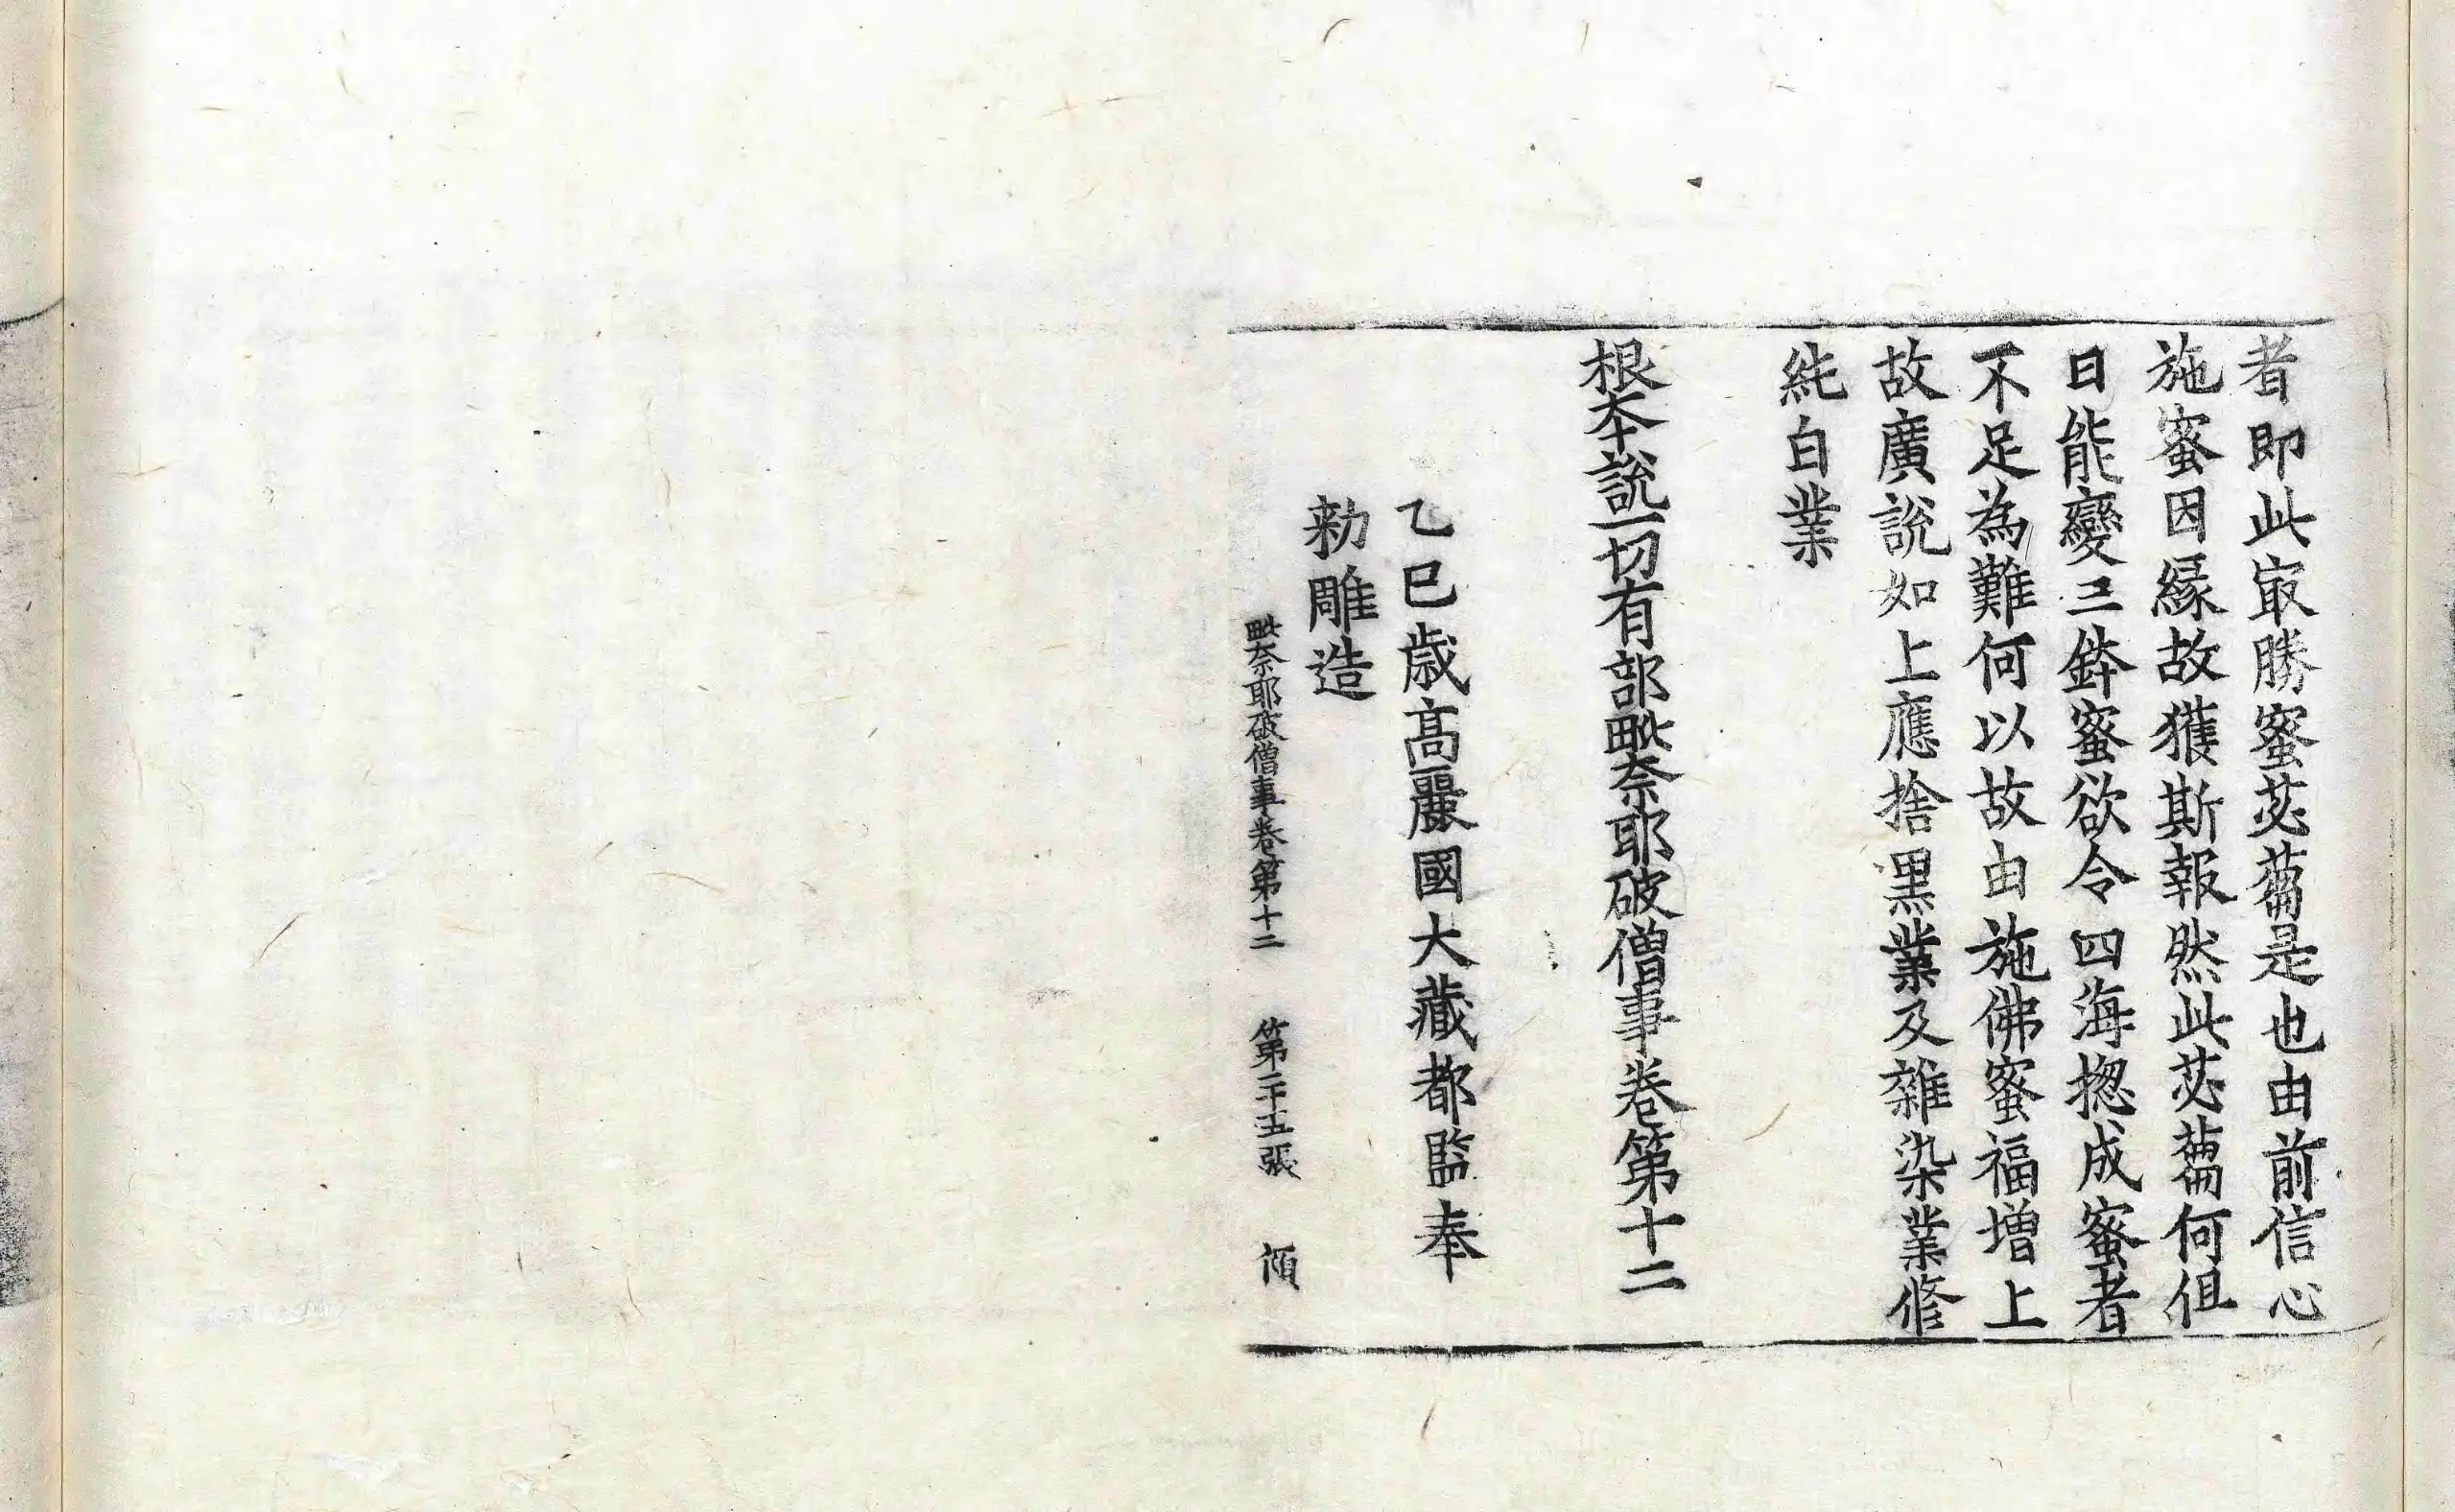 者即此㝡勝蜜苾蒭是也由前信心
施蜜因縁故獲斯報然此苾蒭何但
日能變三鉢蜜欲令四海揔成蜜者
不足為難何以故由施佛蜜福增上
故廣說如上應捨黑業及雜染業修
純白業
根夲說一切有部毗奈耶破僧事卷第十二
乙巳歳高麗國大藏都監奉
勑雕造
毗奈耶破僧事卷第十二 第二十五張